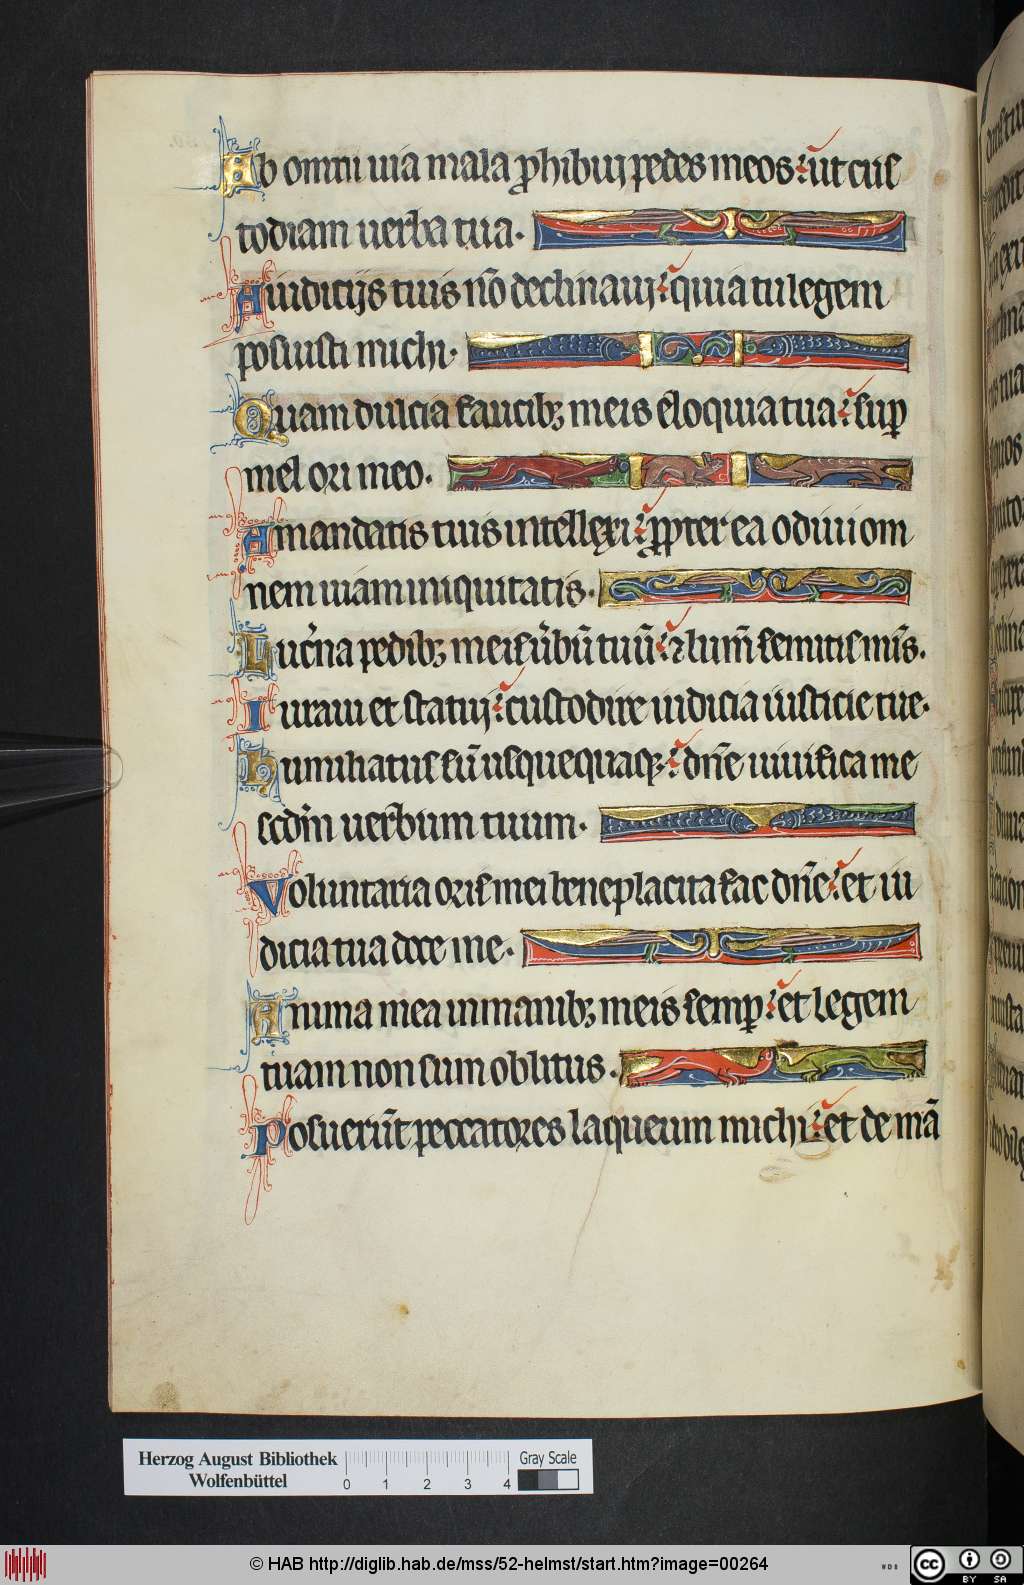 Ab omni uia mala ꝓhibuij pedes meos ut cus
todiam uerba tua.
A iudicijs tuis nō declinauij quia tu legem
posuisti michi.
Quam dulcia faucibꝫ meis eloquia tua suꝑ
mel ori meo.
A mandatis tuis intellexi ꝓpter ea odiui om
nem uiam iniquitatis.
Luc̓na pedibꝫ meis ūbū tuū ⁊ lum̄ semitis m̄s.
Iuraui et statuj custodire iudicia iusticie tue.
Humiliatus sū usquequaqꝫ dn̄e uiuifica me
scdm̄ uerbum tuum.
Voluntaria oris mei beneplacita fac dn̄e et iu
dicia tua doce me.
Anima mea in manibꝫ meis semꝑ et legem
tuam non sum oblitus.
Posuerūt peccatores laqueum michi et de mā
Herzog August Bibliothek
Wolfenbüttel
0 1 2 3 4
Gray Scale
© HAB http://diglib.hab.de/mss/52-helmst/start.htm?image=00264
WDB
cc BY SA